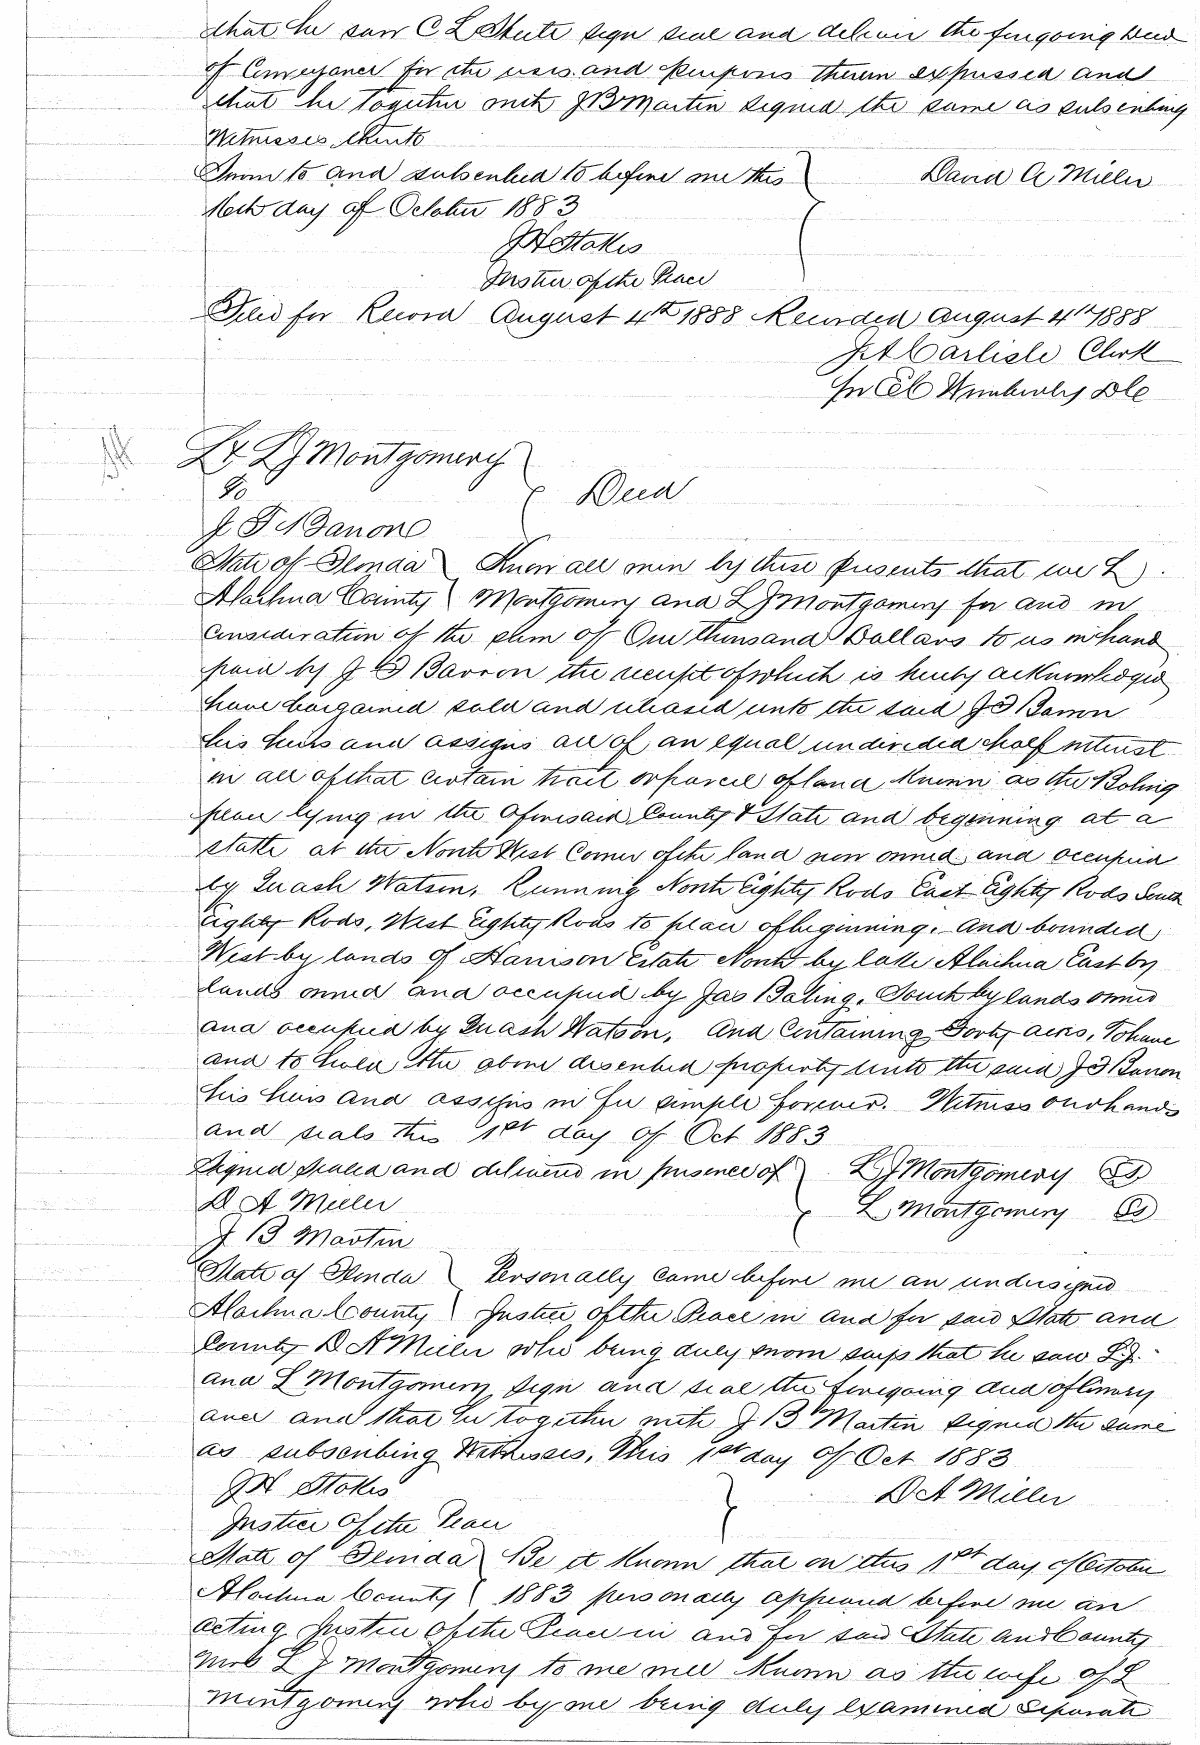 that he saw C L Shute sign seal and deliver the foregoing deed
of Conveyance for the uses and purposes therein expressed and
that he together with J B Martin signed the same as subscribing
Witnesses thereto
Sworn to and subscribed to before me this David A Miller
16th day of October 1883
J H Stokes
Justice of the Peace
Filed for Record August 4th 1888 Recorded August 4th 1888
J A Carlisle Clerk
Wimberly D C
L & L J Montgomery
To
Deed
J F Barron
State of Florida Know all men by these presents that we L
Alachua County Montgomery and L J Montgomery for and in
Consideration of the sum of One thousand Dollars to us in hand
paid by J F Barron the receipt of which is hereby acknowledged
have bargained sold and released unto the said J F Barron
his heirs and assigns all of an equal undivided half interest
in all of that certain tract or parcel of land known as the Boling
place lying in the aforesaid County & State and beginning at a
stake at the North West Corner of the land now owned and occupied
by Quash Watson, Running North Eighty Rods East Eighty Rods South
Eighty Rods, West Eighty Rods to place of beginning. And bounded
West by lands of Harrison Estate North by lake Alachua East by
lands owned and occupied by Jas Boling. South by lands owned
and occupied by Quash Watson, And Containing Forty acres, To have
and to hold the above described property unto the said J F Barron
his heirs and assigns in fee simple forever. Witness our hands
and seals this 1st day of Oct 1883
Signed Sealed and delivered in presence of L J Montgomery LS
D A Miller L Montgomery LS
J B Martin
State of Florida Personally came before me an undersigned
Alachua County Justice of the Peace in and for said State and
County D A Miller who being duly sworn says that he saw L J.
and L Montgomery sign and seal the foregoing deed of Convey
ance and that he together with J B Martin signed the same
as subscribing Witnesses, This 1st day of Oct 1883
J H Stokes D A Miller
Justice of the Peace
State of Florida Be it Known that on this 1st day of October
Alachua County 1883 personally appeared before me an
acting Justice of the Peace in and for said State and County
Mrs L J Montgomery to me well Known as the wife of L
Montgomery who by me being duly examined separate